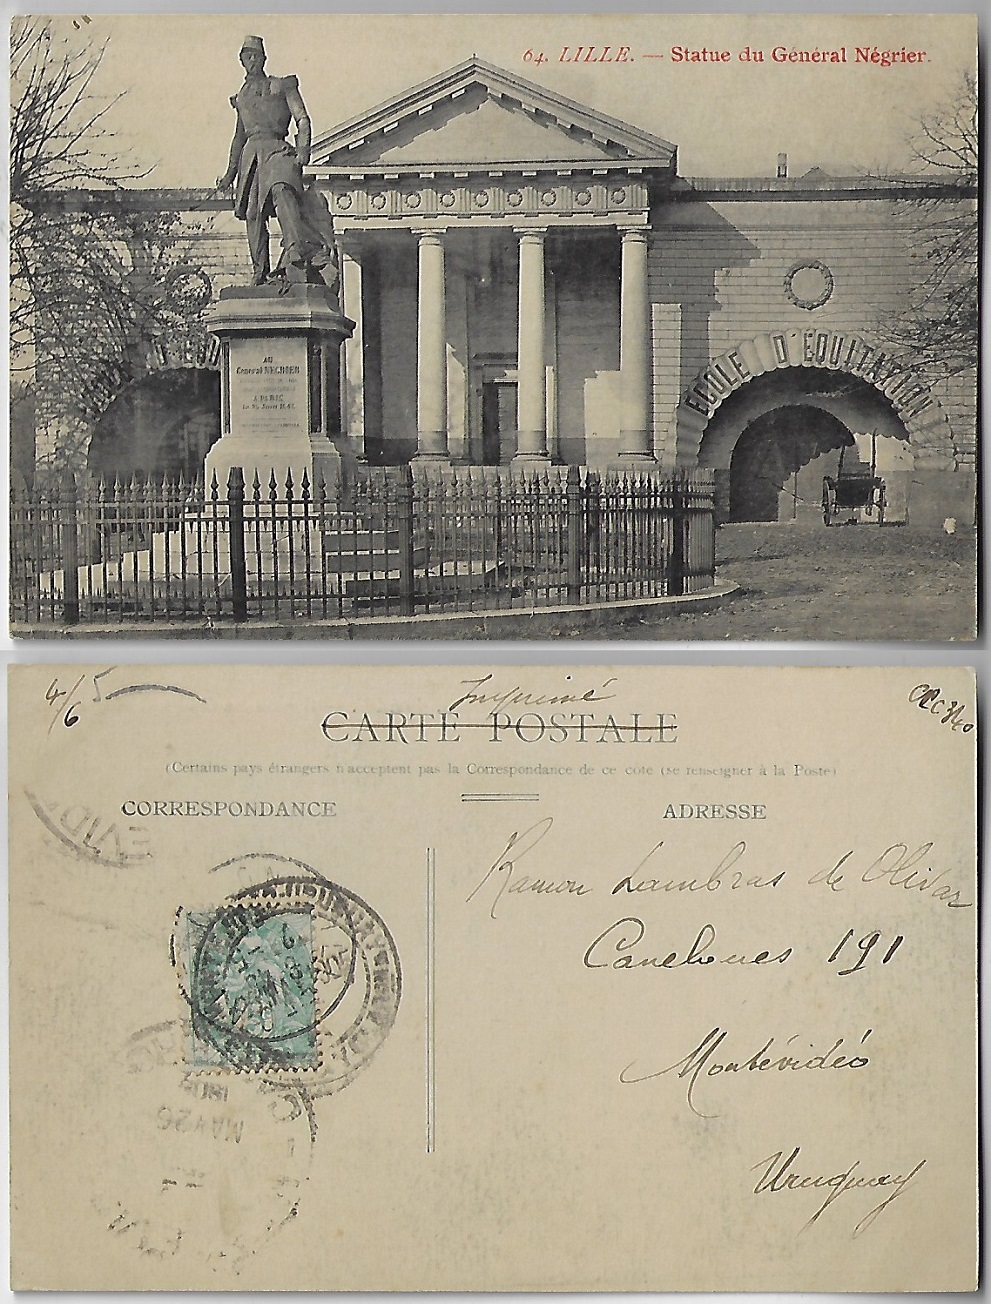 64. LILLE. — Statue du Général Négrier.
AU
Général NEGRIER
A PARIS
ECOLE D'EQUITATION
4/5
6
Imprimé
CARTE POSTALE
(Certains pays étrangers n'acceptent pas la Correspondance de ce côté (se renseigner à la Poste)
CORRESPONDANCE
ADRESSE
Ramon Lambras de Olivar
Canelones 191
Montévidéo
Uruguay
EVID
MAY 26